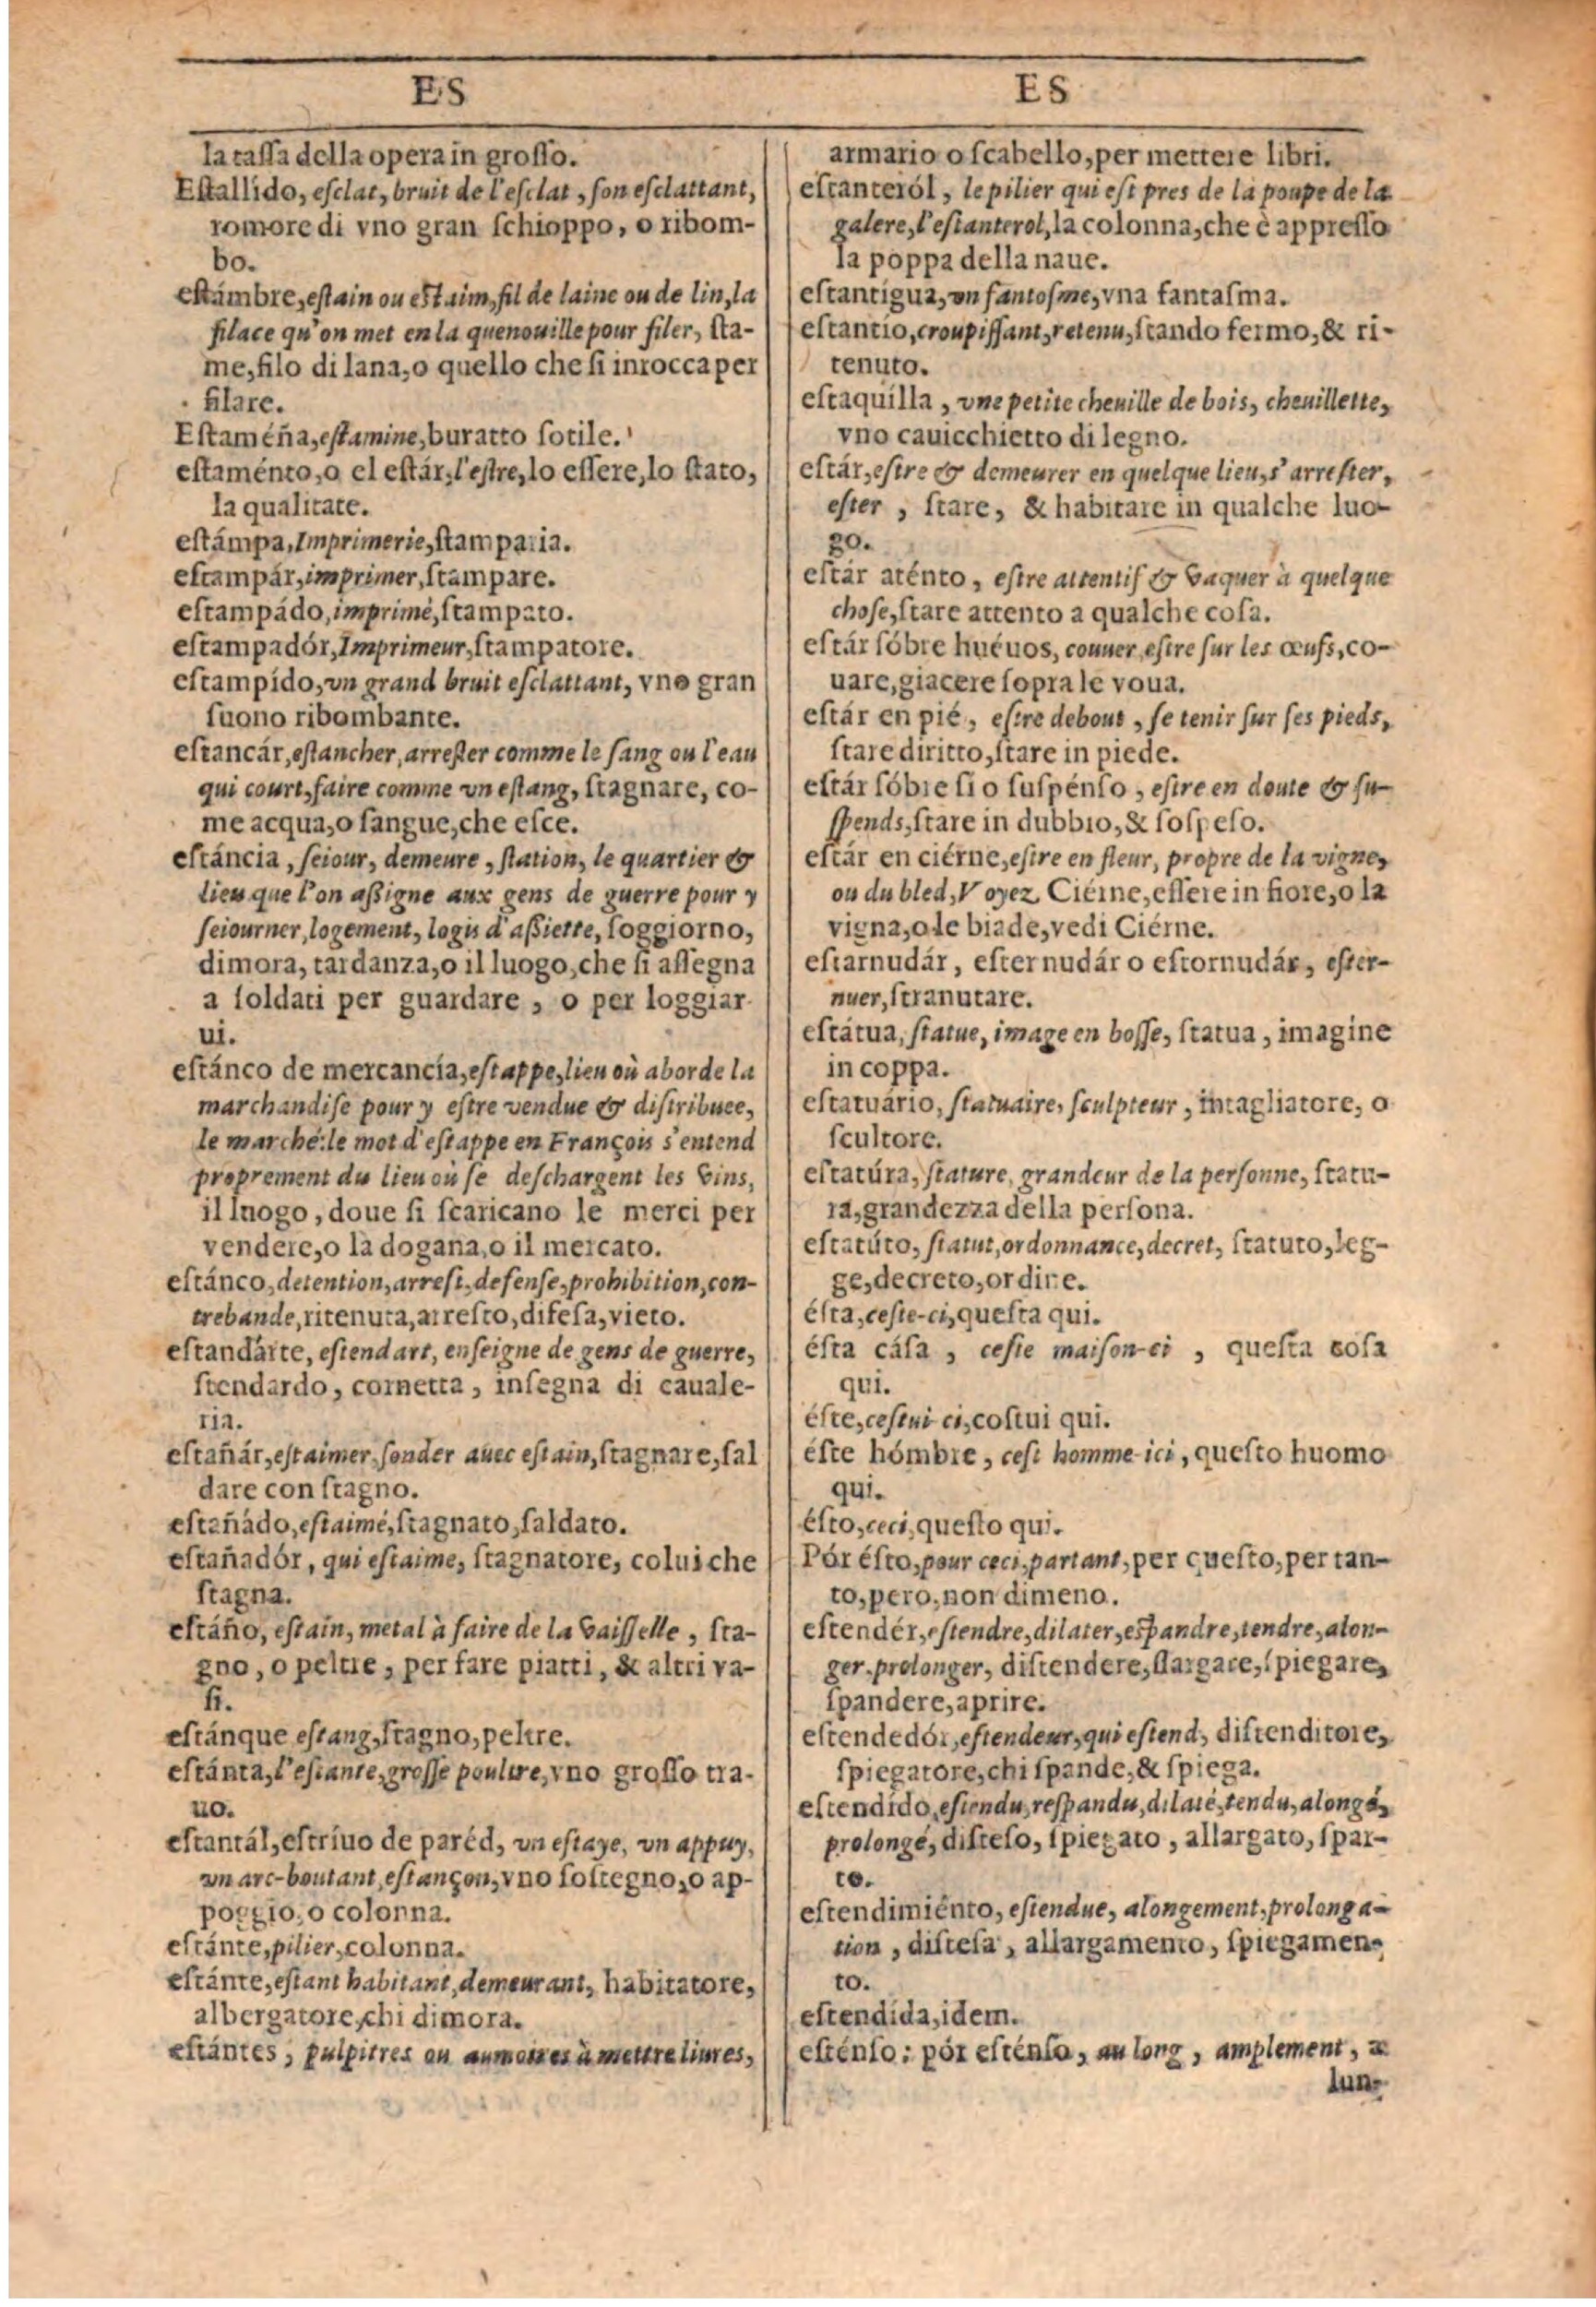 ES
la taſſa della opera in groſſo.
Eſtallído, eſclat, bruit de l'eſclat, ſon eſclattant,
romore di vno gran ſchioppo, o ribom-
bo.
eſtámbre, eſtain ou eſtaim, fil de laine ou de lin, la
filace qu'on met en la quenouille pour filer, ſta-
me, filo di lana, o quello che ſi inrocca per
filare.
Eſtaméña, eſtamine, buratto ſotile.
eſtaménto, o el eſtár, l'eſtre, lo eſſere, lo ſtato,
la qualitate.
eſtámpa, Imprimerie, ſtamparia.
eſtampár, imprimer, ſtampare.
eſtampádo, imprimé, ſtampato.
eſtampadór, Imprimeur, ſtampatore.
eſtampído, vn grand bruit eſclattant, vno gran
ſuono ribombante.
eſtancár, eſtancher, arreſter comme le ſang ou l'eau
qui court, faire comme vn eſtang, ſtagnare, co-
me acqua, o ſangue, che eſce.
eſtáncia, ſeiour, demeure, ſtation, le quartier &
lieu que l'on aßigne aux gens de guerre pour y
ſeiourner, logement, logis d'aßiette, ſoggiorno,
dimora, tardanza, o il luogo, che ſi aſſegna
a ſoldati per guardare, o per loggiar
ui.
eſtánco de mercancía, eſtappe, lieu où aborde la
marchandiſe pour y eſtre vendue & diſtribuee,
le marché: le mot d'eſtappe en François s'entend
proprement du lieu où ſe deſchargent les vins,
il luogo, doue ſi ſcaricano le merci per
vendere, o la dogana, o il mercato.
eſtánco, detention, arreſt, defenſe, prohibition, con-
trebande, ritenuta, arreſto, difeſa, vieto.
eſtandárte, eſtendart, enſeigne de gens de guerre,
ſtendardo, cornetta, inſegna di cauale-
ria.
eſtañár, eſtaimer, ſonder auec eſtain, ſtagnare, ſal
dare con ſtagno.
eſtañádo, eſtaimé, ſtagnato, ſaldato.
eſtañadór, qui eſtaime, ſtagnatore, colui che
ſtagna.
eſtáño, eſtain, metal à faire de la vaiſſelle, ſta-
gno, o peltre, per fare piatti, & altri va-
ſi.
eſtánque eſtang, ſtagno, peltre.
eſtánta, l'eſtante, groſſe poultre, vno groſſo tra-
uo.
eſtantál, eſtríuo de paréd, vn eſtaye, vn appuy,
vn arc-boutant, eſtançon, vno ſoſtegno, o ap-
poggio, o colonna.
eſtánte, pilier, colonna.
eſtánte, eſtant habitant, demeurant, habitatore,
albergatore, chi dimora.
eſtántes, pulpitres ou aumoires à mettre liures,
ES
armario o ſcabello, per mettere libri.
eſtanteról, le pilier qui eſt pres de la poupe de la
galere, l'eſtanterol, la colonna, che è appreſſo
la poppa della naue.
eſtantígua, vn fantoſme, vna fantaſma.
eſtantío, croupiſſant, retenu, ſtando fermo, & ri-
tenuto.
eſtaquílla, vne petite cheuille de bois, cheuillette,
vno cauicchietto di legno.
eſtár, eſtre & demeurer en quelque lieu, s'arreſter,
eſter, ſtare, & habitare in qualche luo-
go.
eſtár aténto, eſtre attentif & vaquer à quelque
choſe, ſtare attento a qualche coſa.
eſtár ſóbre huéuos, couuer, eſtre ſur les œufs, co-
uare, giacere ſopra le voua.
eſtár en pié, eſtre debout, ſe tenir ſur ſes pieds,
ſtare diritto, ſtare in piede.
eſtár ſóbre ſi o ſuſpénſo, eſtre en doute & ſu-
ſpends, ſtare in dubbio, & ſoſpeſo.
eſtár en ciérne, eſtre en fleur, propre de la vigne,
ou du bled, Voyez Ciérne, eſſere in fiore, o la
vigna, o le biade, vedi Ciérne.
eſtarnudár, eſternudár o eſtornudár, eſter-
nuer, ſtranutare.
eſtátua, ſtatue, image en boſſe, ſtatua, imagine
in coppa.
eſtatuário, ſtatuaire, ſculpteur, intagliatore, o
ſcultore.
eſtatúra, ſtature, grandeur de la perſonne, ſtatu-
ra, grandezza della perſona.
eſtatúto, ſtatut, ordonnance, decret, ſtatuto, leg-
ge, decreto, ordine.
éſta, ceſte-ci, queſta qui.
éſta cáſa, ceſte maiſon-ci, queſta coſa
qui.
éſte, ceſtui ci, coſtui qui.
éſte hómbre, ceſt homme-ici, queſto huomo
qui.
éſto, ceci, queſto qui.
Pór éſto, pour ceci, partant, per queſto, per tan-
to, pero, non dimeno.
eſtendér, eſtendre, dilater, eſpandre, tendre, alon-
ger, prolonger, diſtendere, ſlargare, ſpiegare,
ſpandere, aprire.
eſtendedór, eſtendeur, qui eſtend, diſtenditore,
ſpiegatore, chi ſpande, & ſpiega.
eſtendído, eſtendu, reſpandu, dilaté, tendu, alongé,
prolongé, diſteſo, ſpiegato, allargato, ſpar-
to.
eſtendimiénto, eſtendue, alongement, prolonga-
tion, diſteſa, allargamento, ſpiegamen-
to.
eſtendída, idem.
eſténſo: pór eſténſo, au long, amplement, a
lun-